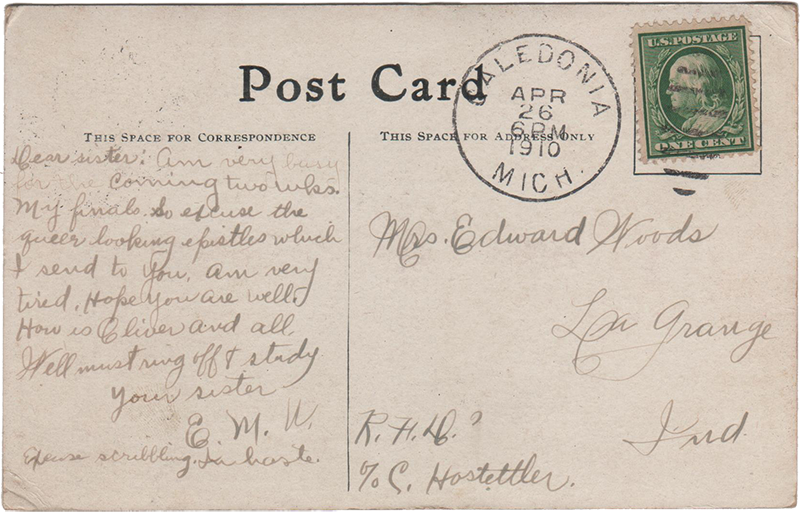 Post Card
THIS SPACE FOR CORRESPONDENCE
THIS SPACE FOR ADDRESS ONLY
CALEDONIA
APR
26
6 PM
1910
MICH.
U.S. POSTAGE
ONE CENT
Dear sister: Am very busy
for the coming two wks.
My finals. So excuse the
queer looking epistles which
I send to you, am very
tired. Hope you are well.
How is Oliver and all
Well must ring off & study
Your sister
E. M. W.
Excuse scribbling. In haste.
Mrs. Edward Woods
La Grange
Ind
R. F. D. ?
% C. Hostettler.